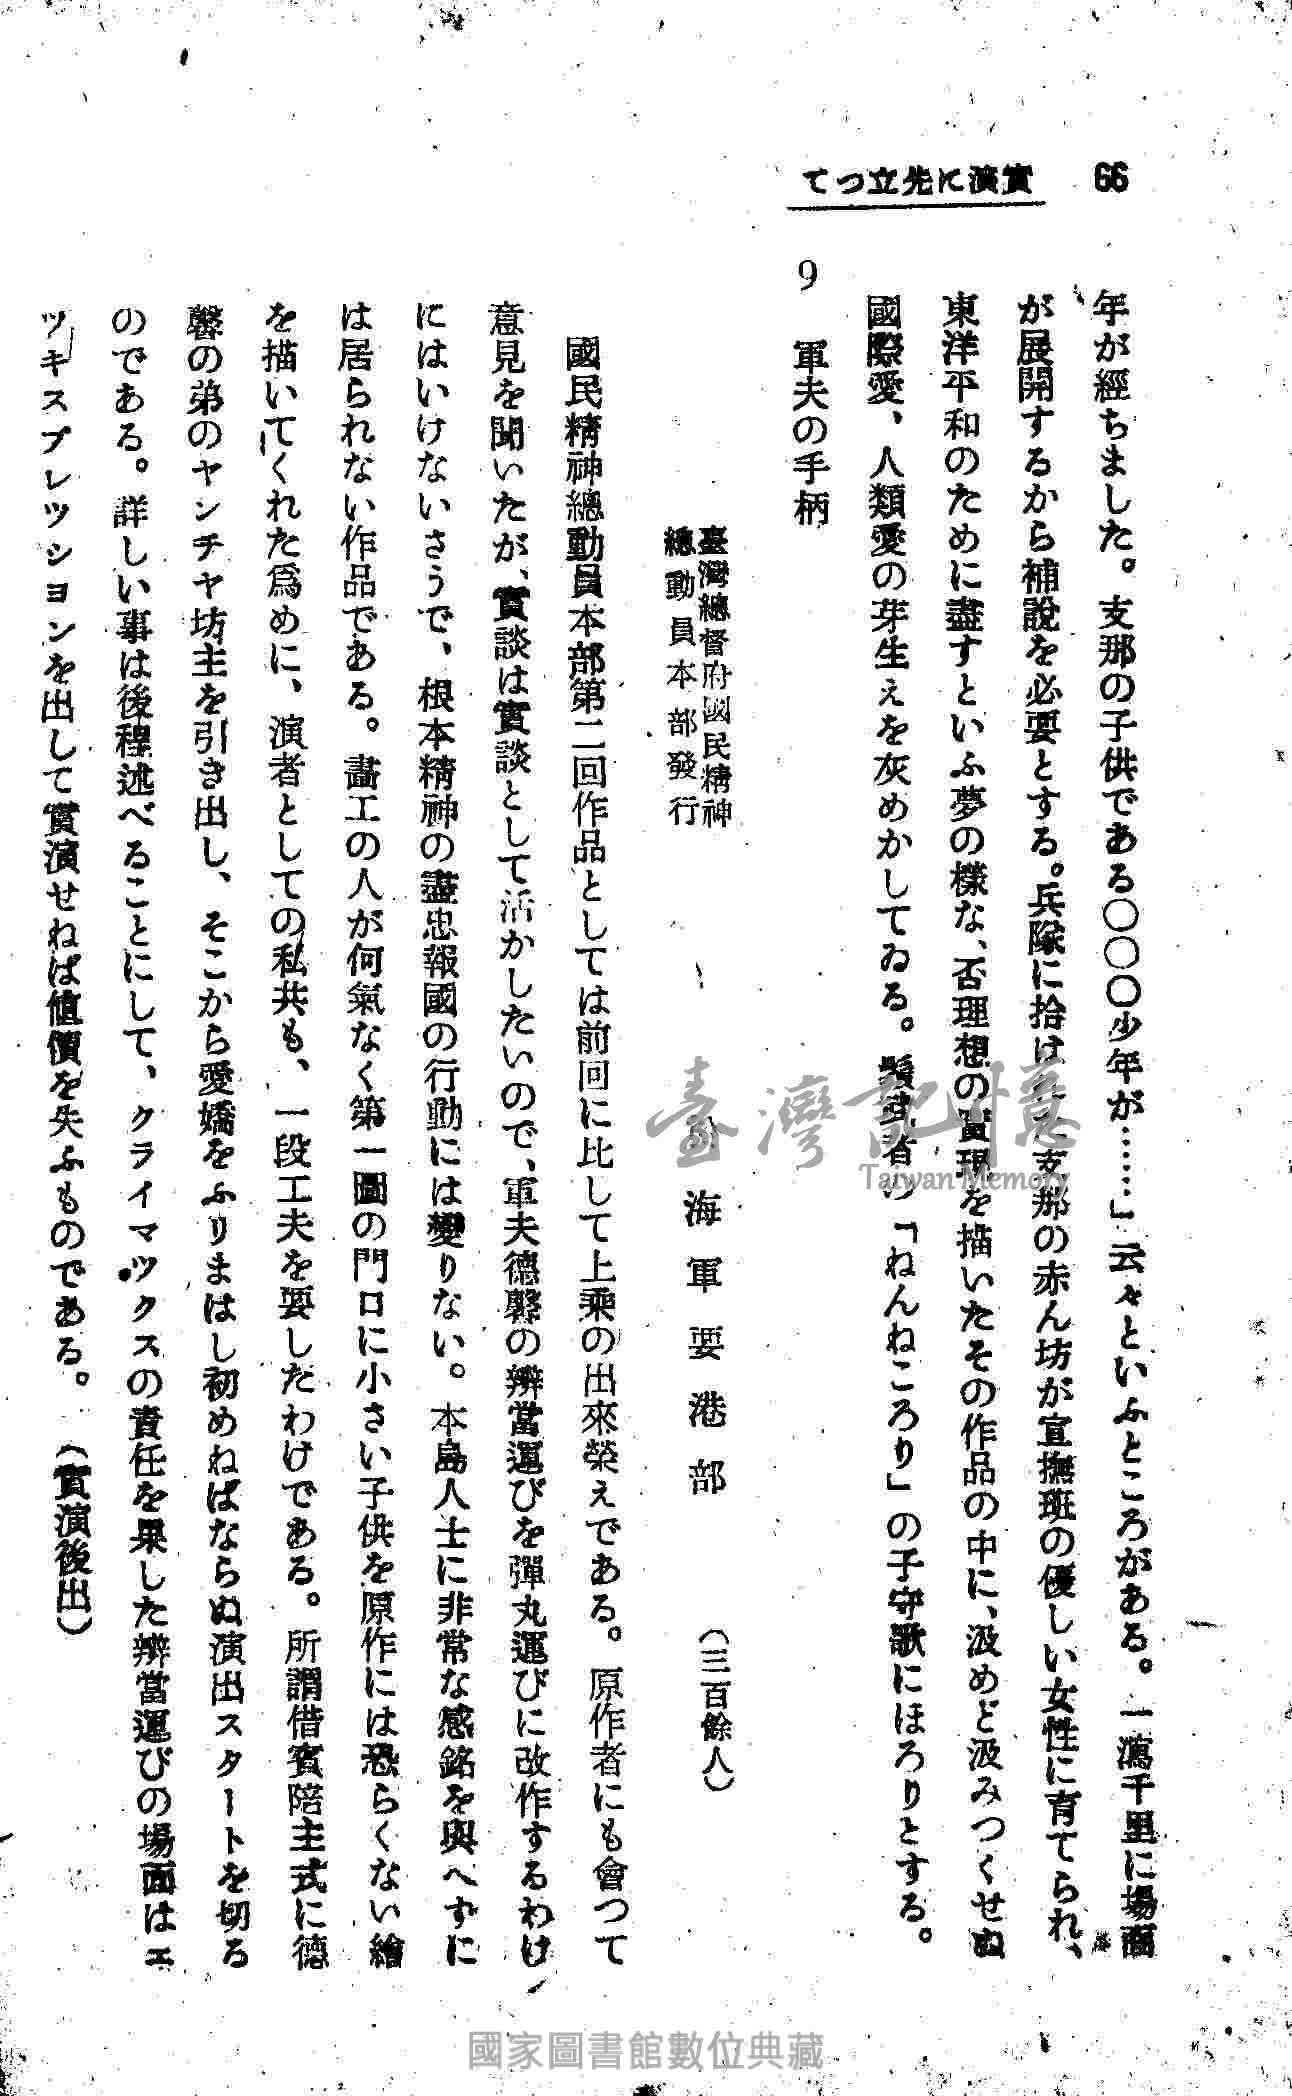 66
實演に先立つて
年が經ちました。支那の子供である〇〇〇少年が……」云々といふところがある。一瀉千里に場面
が展開するから補説を必要とする。兵隊に拾は支那の赤ん坊が宣撫班の優しい女性に育てられ、
東洋平和のために盡すといふ夢の樣な、否理想の實現を描いたその作品の中に、汲めど汲みつくせぬ
國際愛、人類愛の芽生えを灰めかしてゐる。鬚武者の「ねんねころり」の子守歌にほろりとする。
9 軍夫の手柄
臺灣總督府國民精神
總動員本部發行
海軍要港部
（三百餘人）
國民精神總動員本部第二回作品としては前回に比して上乘の出來榮えである。原作者にも會つて
意見を聞いたが、實談は實談として活かしたいので、軍夫德馨の辨當運びを彈丸運びに改作するわけ
にはいけないさうで、根本精神の盡忠報國の行動には變りない。本島人士に非常な感銘を與へずに
は居られない作品である。畵工の人が何氣なく第一圖の門口に小さい子供を原作には恐らくない繪
を描いてくれた爲めに、演者としての私共も、一段工夫を要したわけである。所謂借賓陪主式に德
馨の弟のヤンチヤ坊主を引き出し、そこから愛嬌をふりまはし初めねばならぬ演出スタートを切る
のである。詳しい事は後程述べることにして、クライマツクスの責任を果した辨當運びの場面はエ
ツキスプレツシヨンを出して實演せねば値價を失ふものである。（實演後出）
臺灣記憶
Taiwan Memory
國家圖書館數位典藏